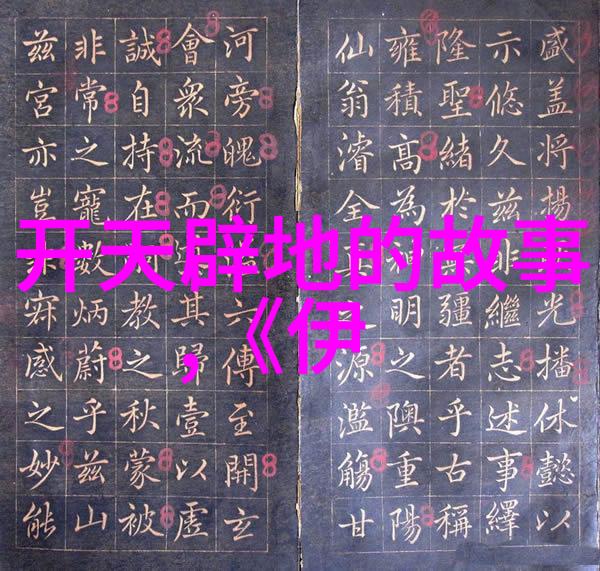 开天辟地的故事
，《伊
盛盖将揚光播休懿以
示悠久兹非繼志述事繹
隆聖緒於疆者乎古稱
雍積高為神明之隩重陽
仙翁濬全真之源濫觴甘
河旁魄衍六傳至開玄
會衆流而其歸壹以虛
誠自持在教之秋蒙被
非常之寵數炳蔚乎兹山
兹宮亦豈寂感之妙能